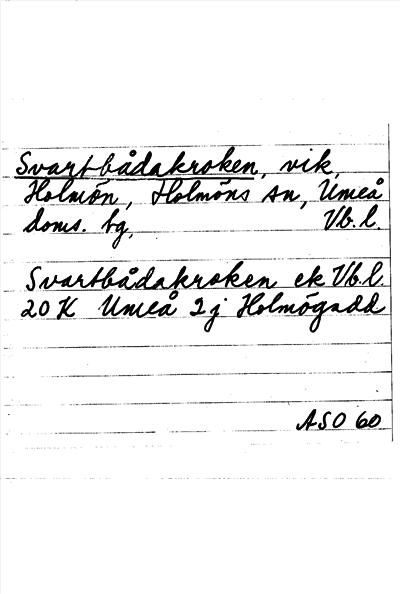 Svartbådakroken, vik,
Holmön, Holmöns sn, Umeå
doms. tg, Vb.l.
Svartbådakroken ek Vb.l.
20 K Umeå 2j Holmögadd
ASO 60